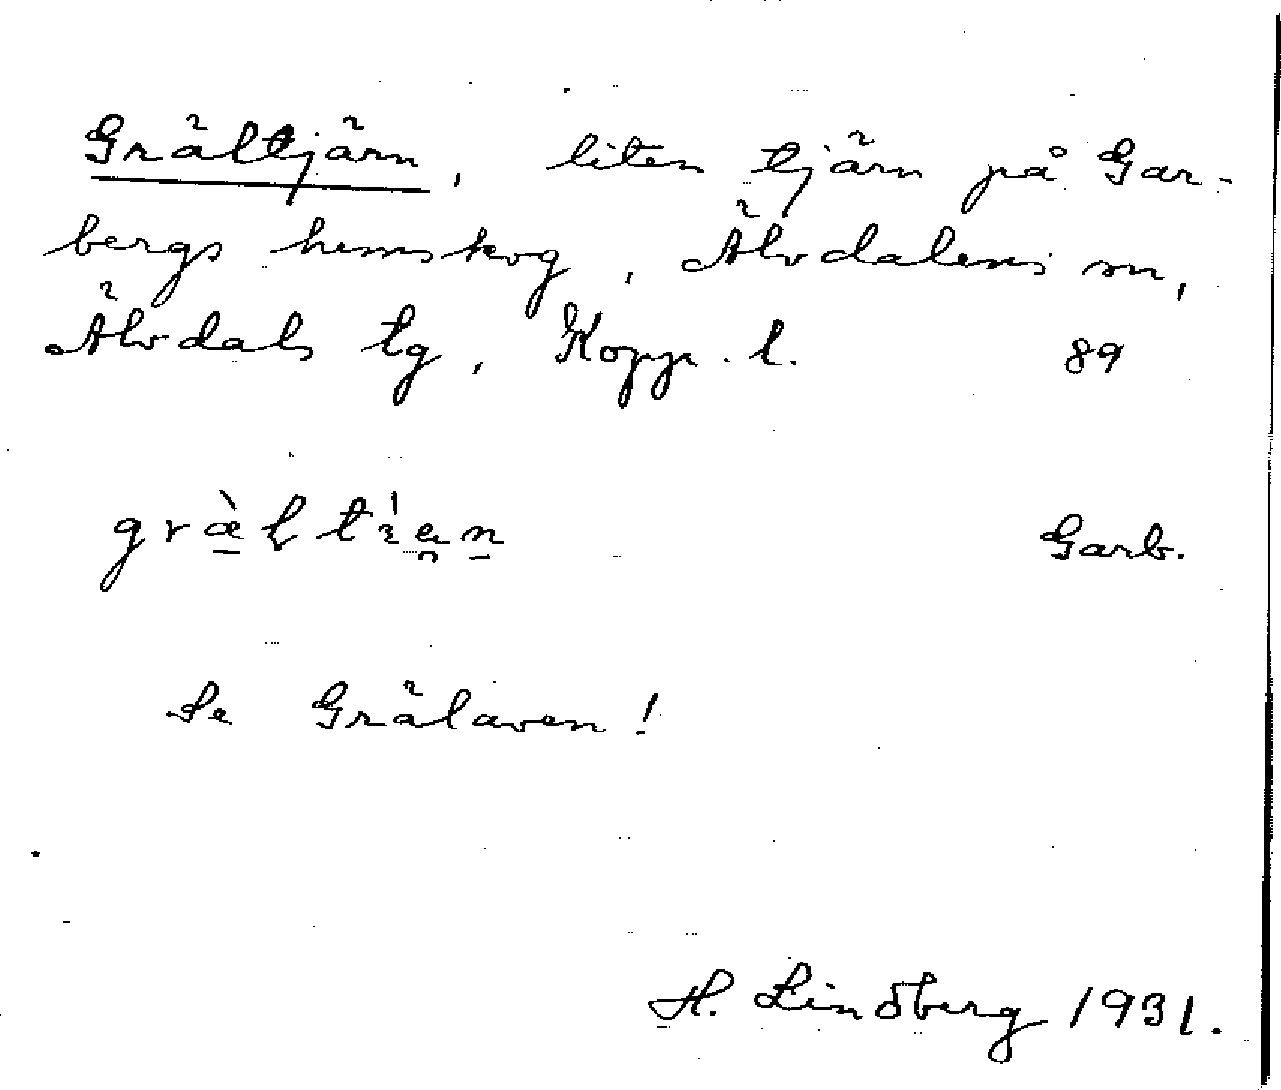 Grältjärn, liten tjärn på Gar-
bergs hemskog, Älvdalens sn,
Älvdals tg, Kopp. l. 89
Garb.
Se Grälaven!
H. Lindberg 1931.